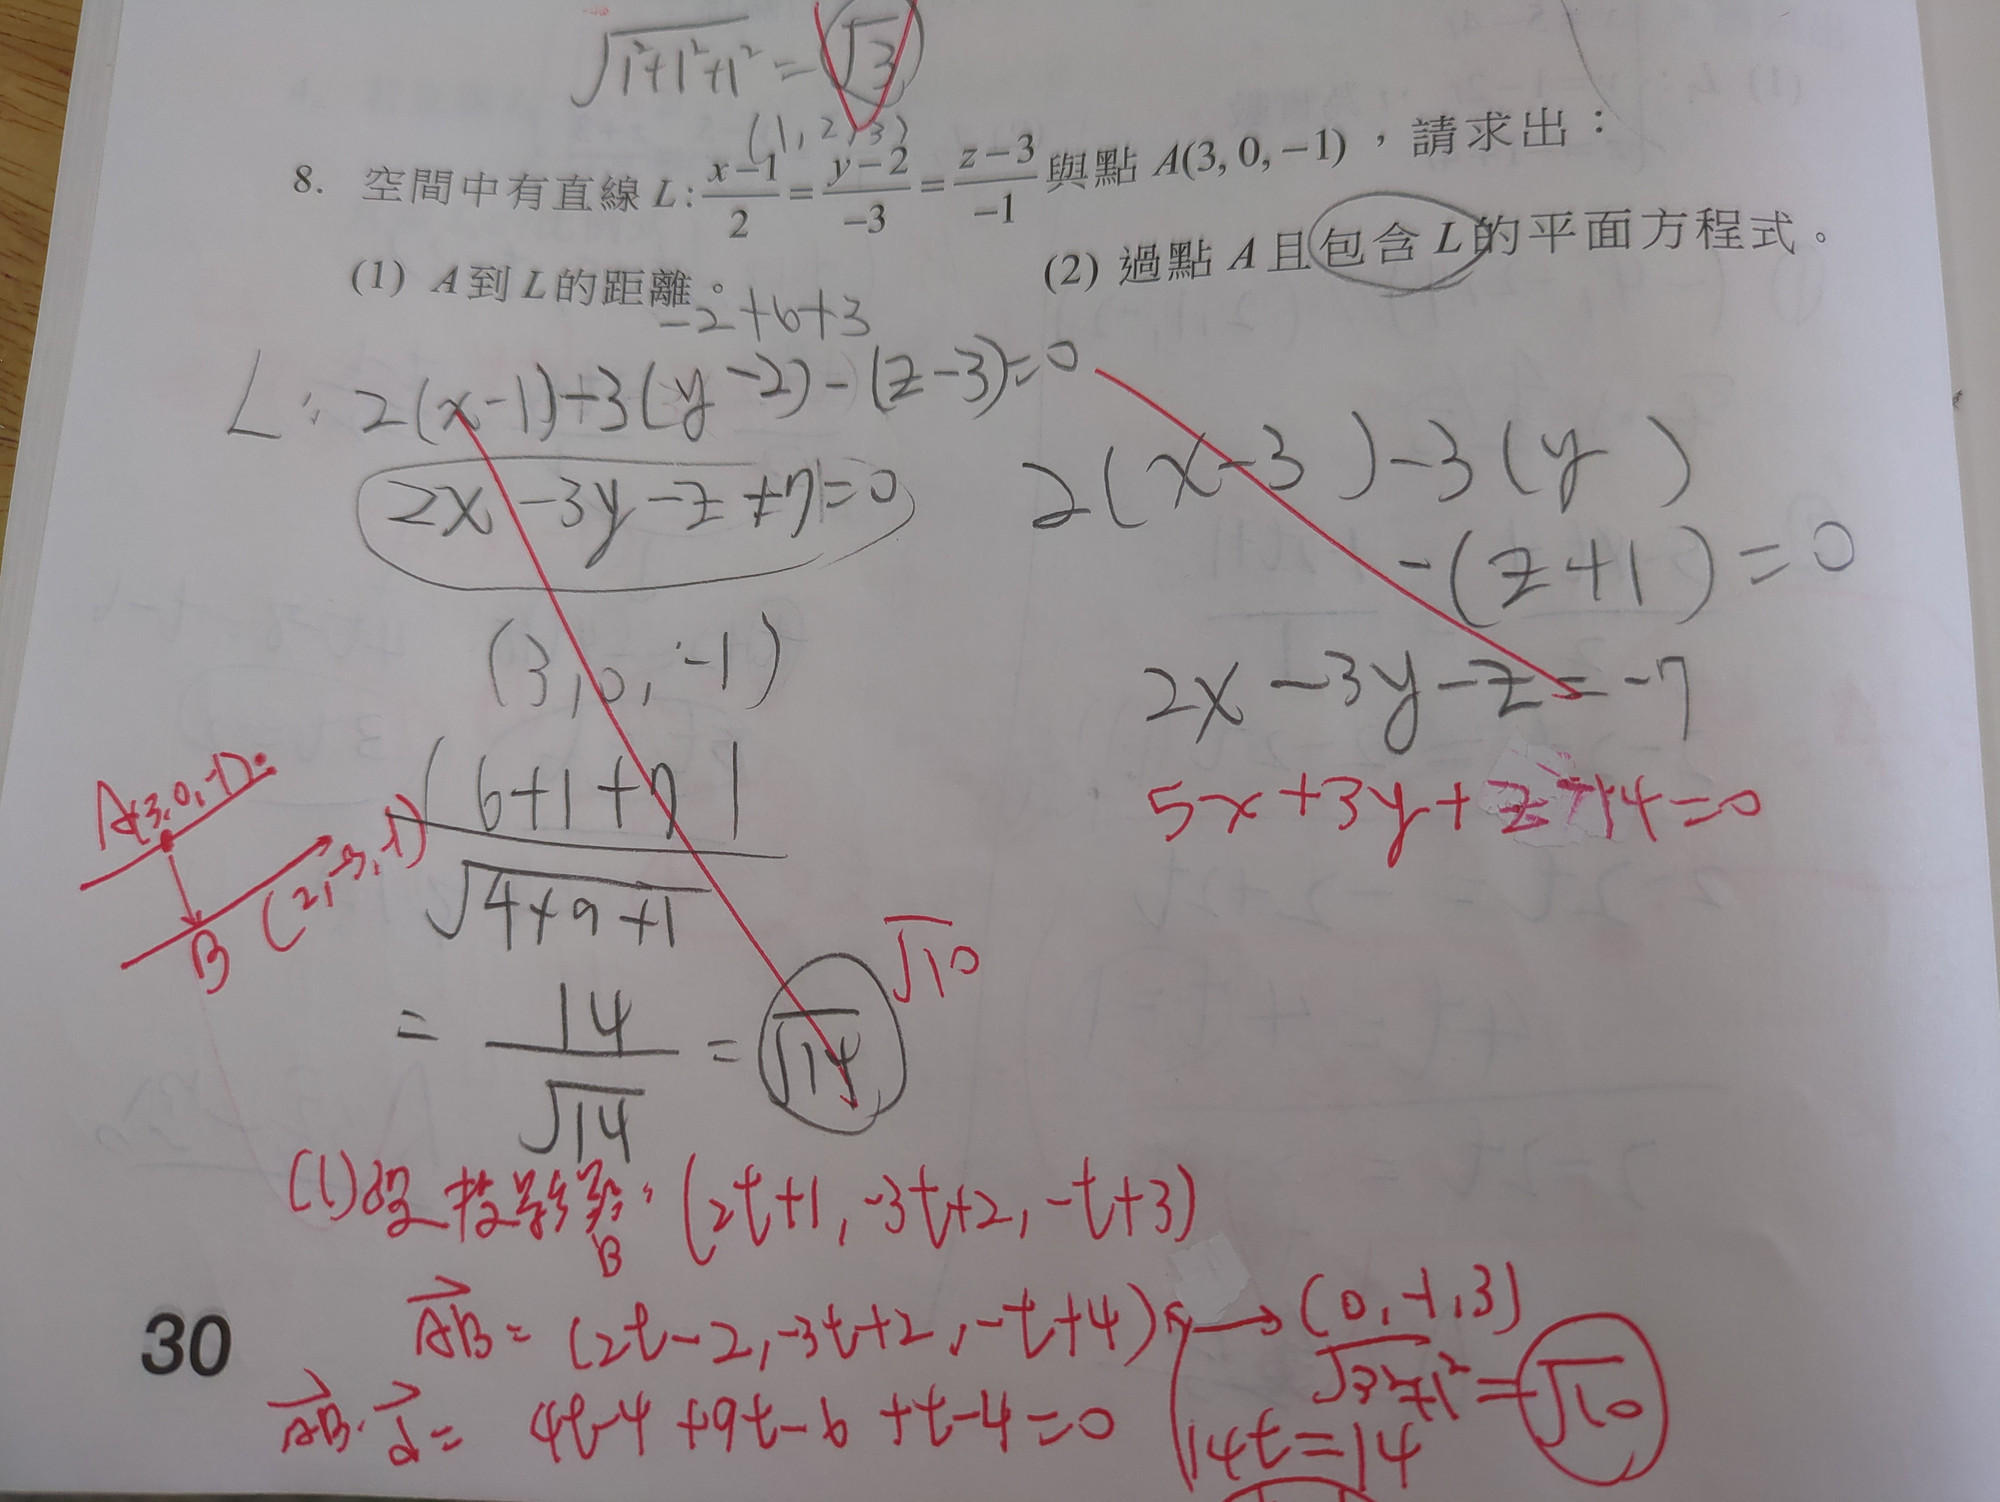 √1²+1²+1² = √3
(1, 2, 3)
8. 空間中有直線 L: (x−1)/2 = (y−2)/−3 = (z−3)/−1 與點 A(3, 0, −1)，請求出：
(1) A到L的距離。
(2) 過點 A 且包含 L 的平面方程式。
-2+6+3
L: 2(x-1)+3(y-2)-(z-3)=0
2x-3y-z+7=0
(3, 0, -1)
|6+1+7|
√4+9+1
= 14/√14 = √14
√10
2(x-3)-3(y )
-(z+1)=0
2x-3y-z=-7
5x+3y+z-14=0
A(3,0,-1)
(2,-3,-1)
B
(1)設投影點B: (2t+1, -3t+2, -t+3)
AB = (2t-2, -3t+2, -t+4) → (0, -1, 3)
√3²+1² = √10
AB·d = 4t-4+9t-6+t-4=0
14t=14
30